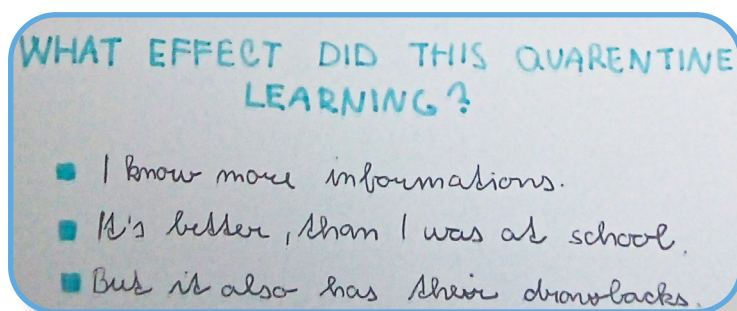 WHAT EFFECT DID THIS QUARENTINE
LEARNING?
I know more informations.
It's better, than I was at school.
But it also has their drawbacks.